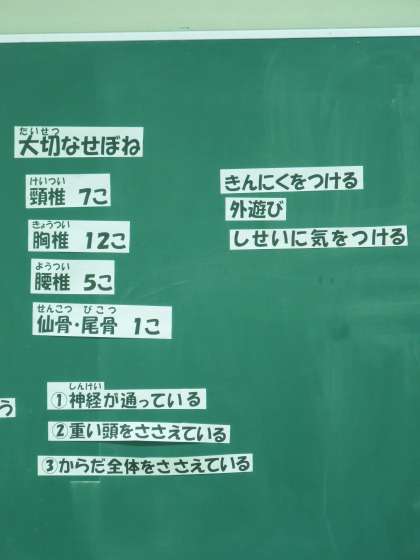 たいせつ
大切なせぼね
けいつい
頸椎 7こ
きょうつい
胸椎 12こ
ようつい
腰椎 5こ
せんこつ びこつ
仙骨・尾骨 1こ
きんにくをつける
外遊び
しせいに気をつける
う
しんけい
①神経が通っている
②重い頭をささえている
③からだ全体をささえている